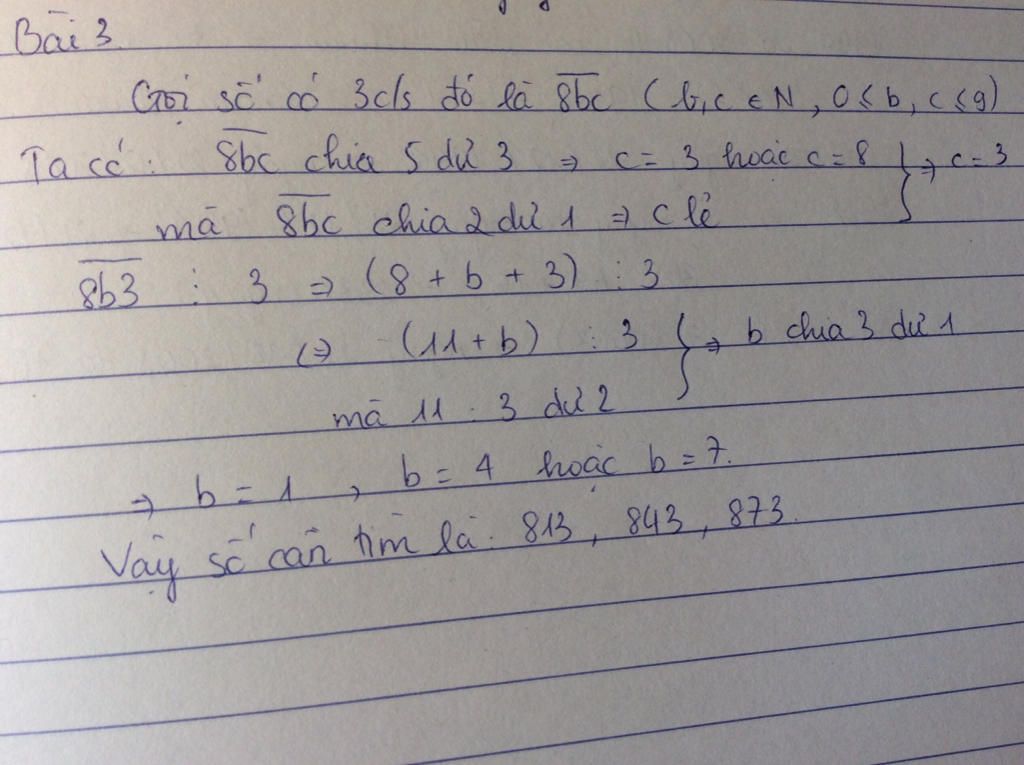 Bài 3
Gọi số có 3c/s đó là 8bc (b,c ∈ N, 0 ≤ b, c ≤ 9)
Ta có: 8bc chia 5 dư 3 ⇒ c = 3 hoặc c = 8 } ⇒ c = 3
mà 8bc chia 2 dư 1 ⇒ c lẻ
8b3 ⋮ 3 ⇒ (8 + b + 3) ⋮ 3
⇔ (11 + b) ⋮ 3 } ⇒ b chia 3 dư 1
mà 11 : 3 dư 2
⇒ b = 1, b = 4 hoặc b = 7.
Vậy số cần tìm là: 813, 843, 873.